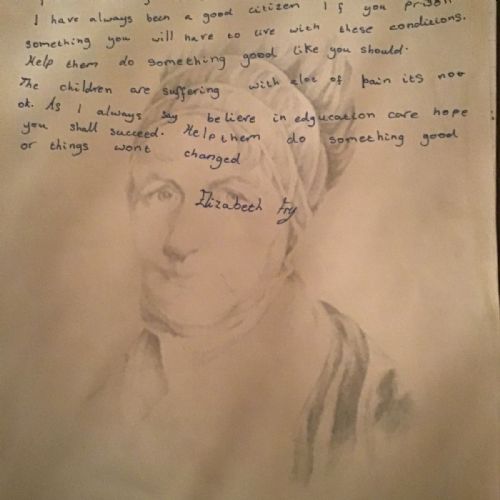 I have always been a good citizen If you prison
something you will have to live with these conditions.
Help them do something good like you should.
The children are suffering with alot of pain its not
ok. As I always say believe in edgucation care hope
you shall succeed. Help them do something good
or things wont changed
Elizabeth Fry